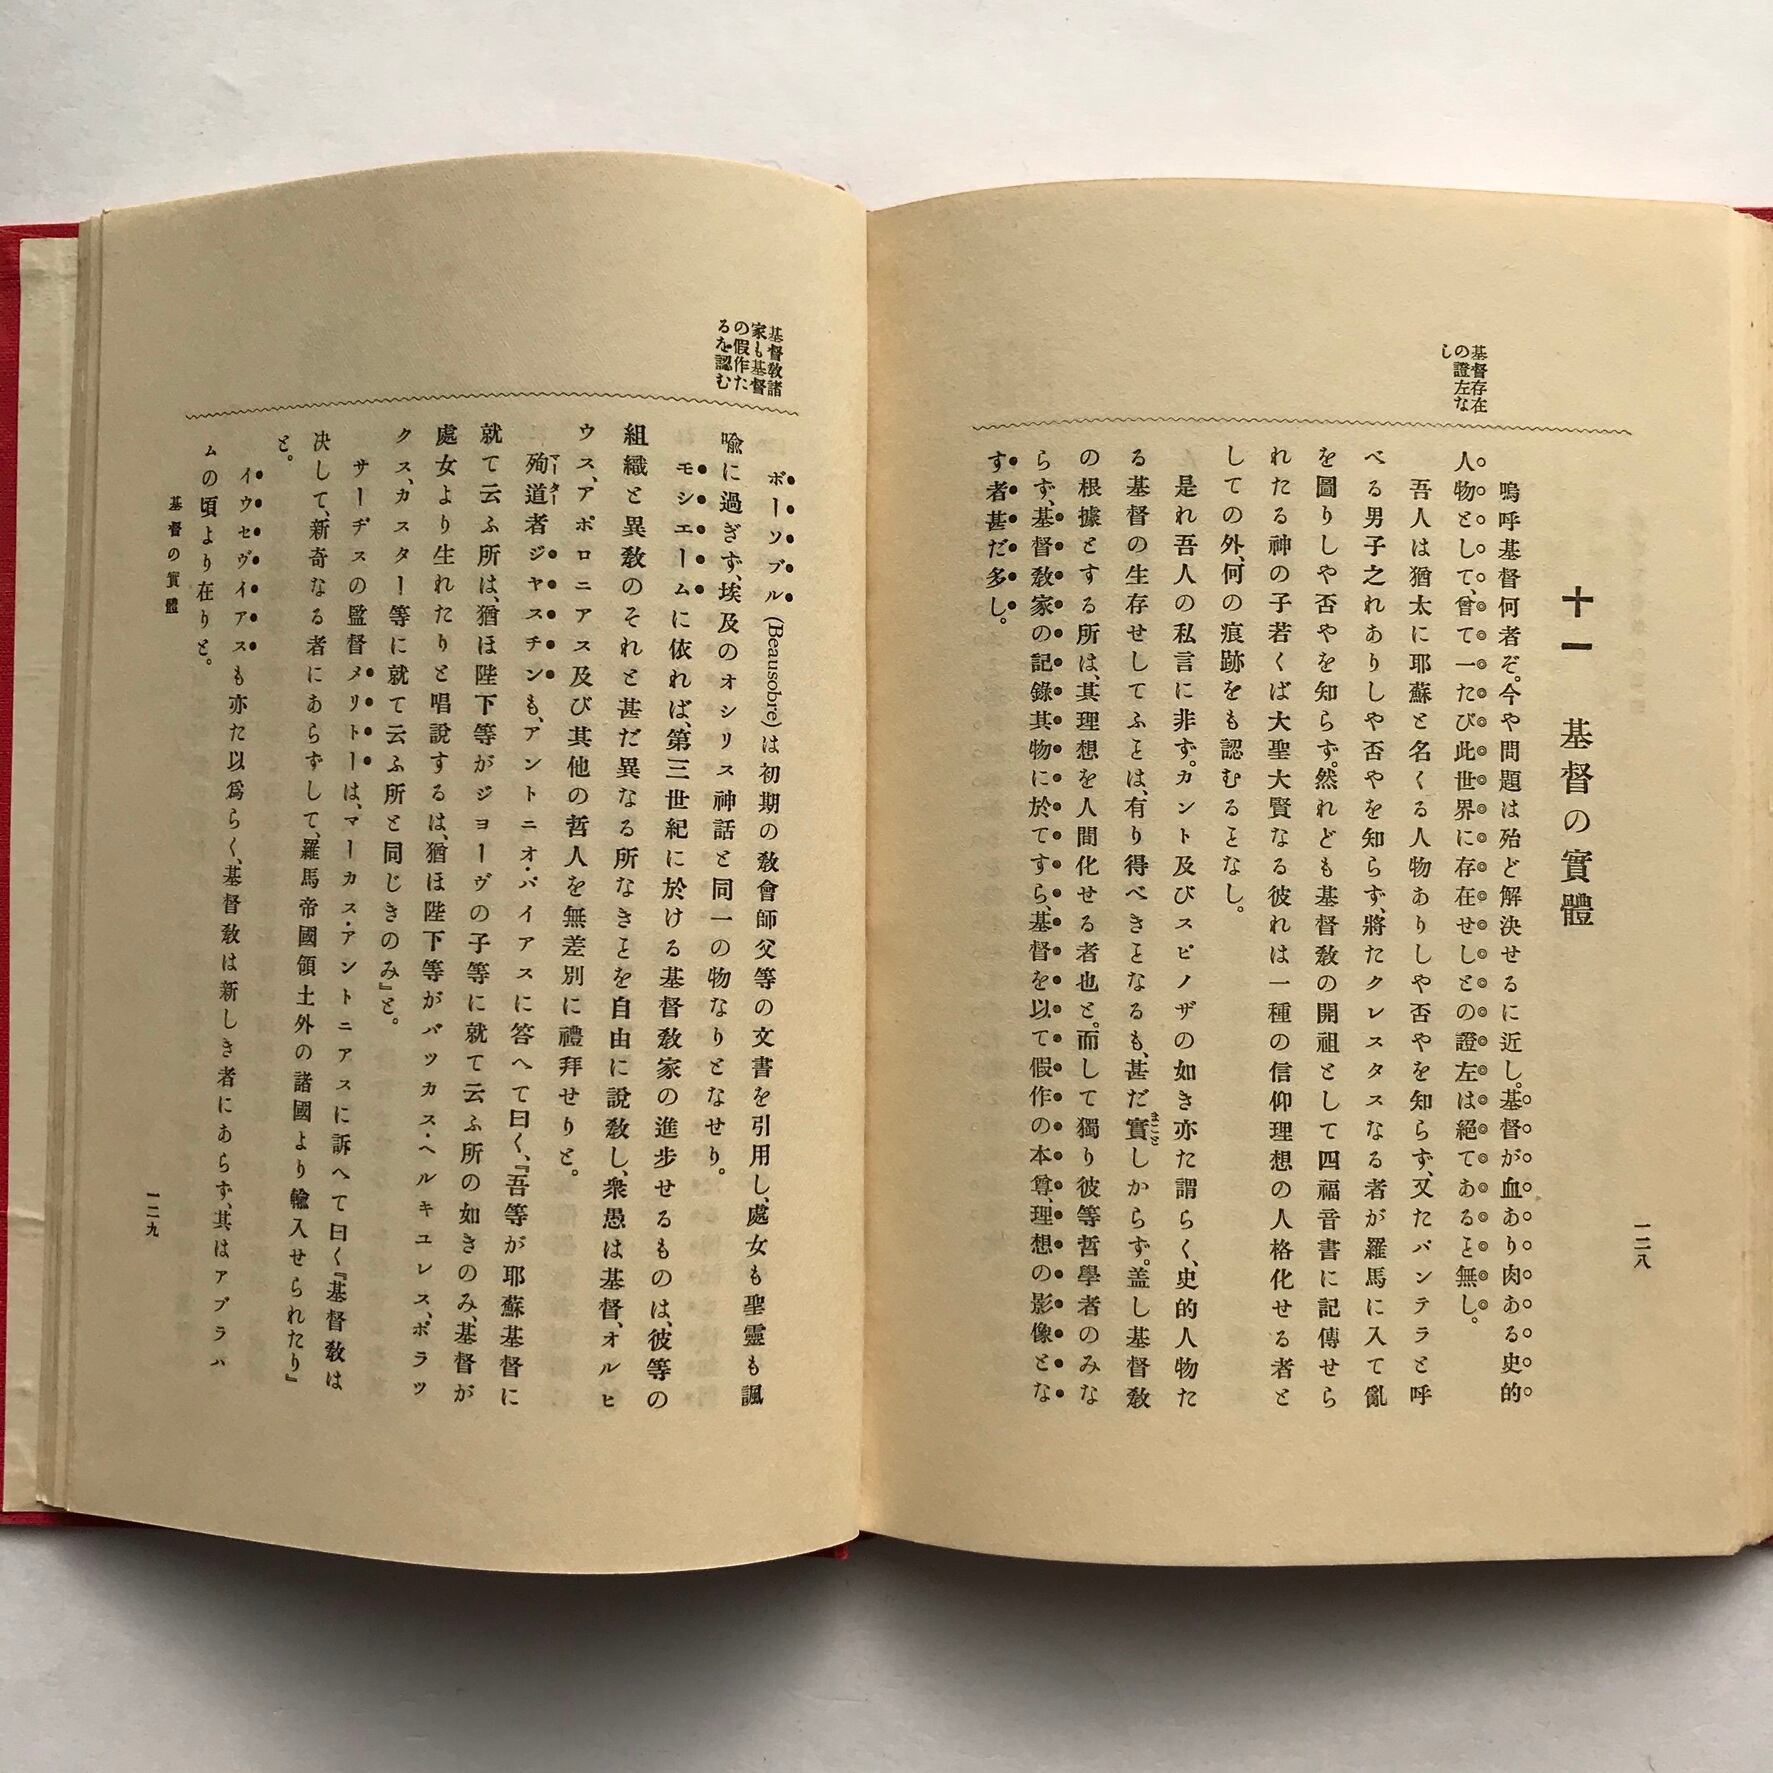 一二八
基督存在
の證左な
し
十一　基督の實體
嗚呼基督何者ぞ。今や問題は殆ど解決せるに近し。基督が血あり肉ある史的
人物として、曾て一たび此世界に存在せしとの證左は絕てあるヿ無し。
吾人は猶太に耶蘇と名くる人物ありしや否やを知らず、又たパンテラと呼
べる男子之れありしや否やを知らず、將たクレスタスなる者が羅馬に入て亂
を圖りしや否やを知らず。然れども基督敎の開祖として四福音書に記傳せら
れたる神の子若くば大聖大賢なる彼れは一種の信仰理想の人格化せる者と
しての外、何の痕跡をも認むるヿなし。
是れ吾人の私言に非ず。カント及びスピノザの如き亦た謂らく、史的人物た
る基督の生存せしてふヿは、有り得べきヿなるも、甚だ實しからず。盖し基督敎
の根據とする所は、其理想を人間化せる者也と。而して獨り彼等哲學者のみな
らず、基督敎家の記錄其物に於てすら、基督を以て假作の本尊、理想の影像とな
す者甚だ多し。
基督敎諸
家も基督
の假作た
るを認む
ボーソブル(Beausobre)は初期の敎會師父等の文書を引用し、處女も聖靈も諷
喩に過ぎず、埃及のオシリス神話と同一の物なりとなせり。
モシエームに依れば、第三世紀に於ける基督敎家の進步せるものは、彼等の
組織と異敎のそれと甚だ異なる所なきヿを自由に說敎し、衆愚は基督、オルヒ
ウス、アポロニアス及び其他の哲人を無差別に禮拜せりと。
殉道者ジヤスチンも、アントニオ・パイアスに答へて曰く、『吾等が耶蘇基督に
就て云ふ所は、猶ほ陛下等がジヨーヴの子等に就て云ふ所の如きのみ、基督が
處女より生れたりと唱說するは、猶ほ陛下等がバツカス・ヘルキユレス、ポラツ
クス、カスター等に就て云ふ所と同じきのみ』と。
サーヂスの監督メリトーは、マーカス・アントニアスに訴へて曰く『基督敎は
決して、新奇なる者にあらずして、羅馬帝國領土外の諸國より輸入せられたり』
と。
イウセヴイアスも亦た以爲らく、基督敎は新しき者にあらず、其はアブラハ
ムの頃より在りと。
基督の實體
一二九